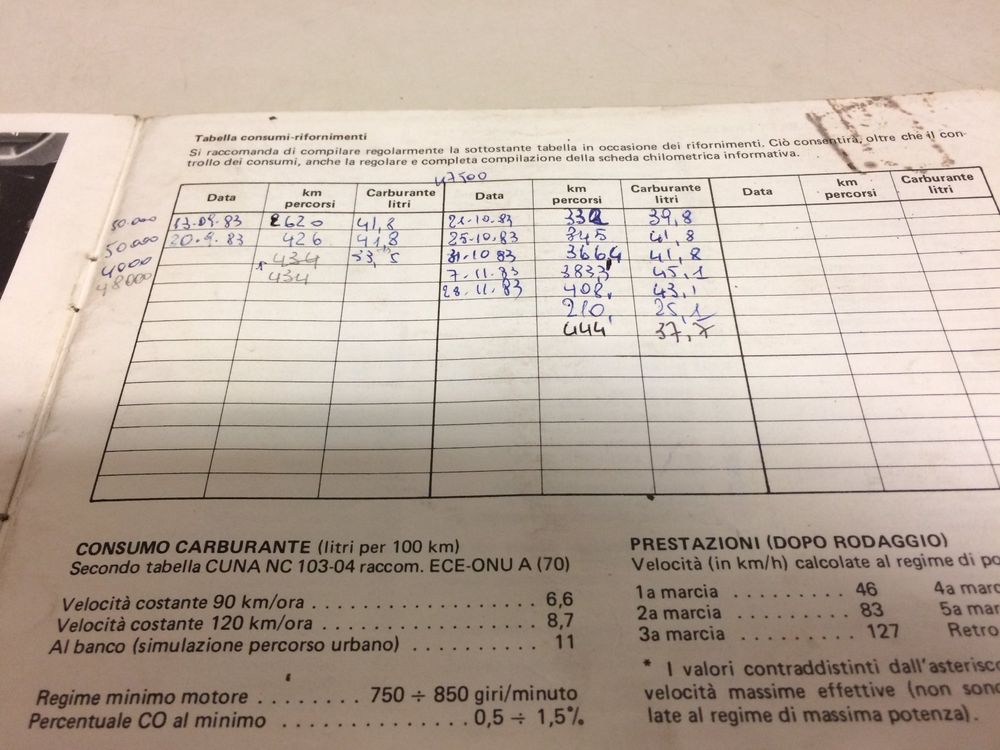 Tabella consumi-rifornimenti
Si raccomanda di compilare regolarmente la sottostante tabella in occasione dei rifornimenti. Ciò consentirà, oltre che il con-
trollo dei consumi, anche la regolare e completa compilazione della scheda chilometrica informativa.
47500
Data km percorsi Carburante litri Data km percorsi Carburante litri Data km percorsi Carburante litri
50.000 13.09.83 620 41,8 21.10.83 332 39,8
50000 20.9.83 426 41,8 25.10.83 345 41,8
4000 434 33,5 31.10 83 366,4 41,8
48000 434 7.11.83 383, 45,1
28.11.83 408, 43,1
210, 25,1
444 37,7
CONSUMO CARBURANTE (litri per 100 km)
Secondo tabella CUNA NC 103-04 raccom. ECE-ONU A (70)
Velocità costante 90 km/ora . . . . . . . . . . . . . . . . . . . 6,6
Velocità costante 120 km/ora . . . . . . . . . . . . . . . . . . 8,7
Al banco (simulazione percorso urbano) . . . . . . . . . . 11
Regime minimo motore . . . . . . . . 750 ÷ 850 giri/minuto
Percentuale CO al minimo . . . . . . . . . . . . . . . 0,5 ÷ 1,5%
PRESTAZIONI (DOPO RODAGGIO)
Velocità (in km/h) calcolate al regime di po
1a marcia . . . . . . . . . 46 4a marc
2a marcia . . . . . . . . . 83 5a mar
3a marcia . . . . . . . . . 127 Retro
* I valori contraddistinti dall'asterisco
velocità massime effettive (non sono
late al regime di massima potenza).